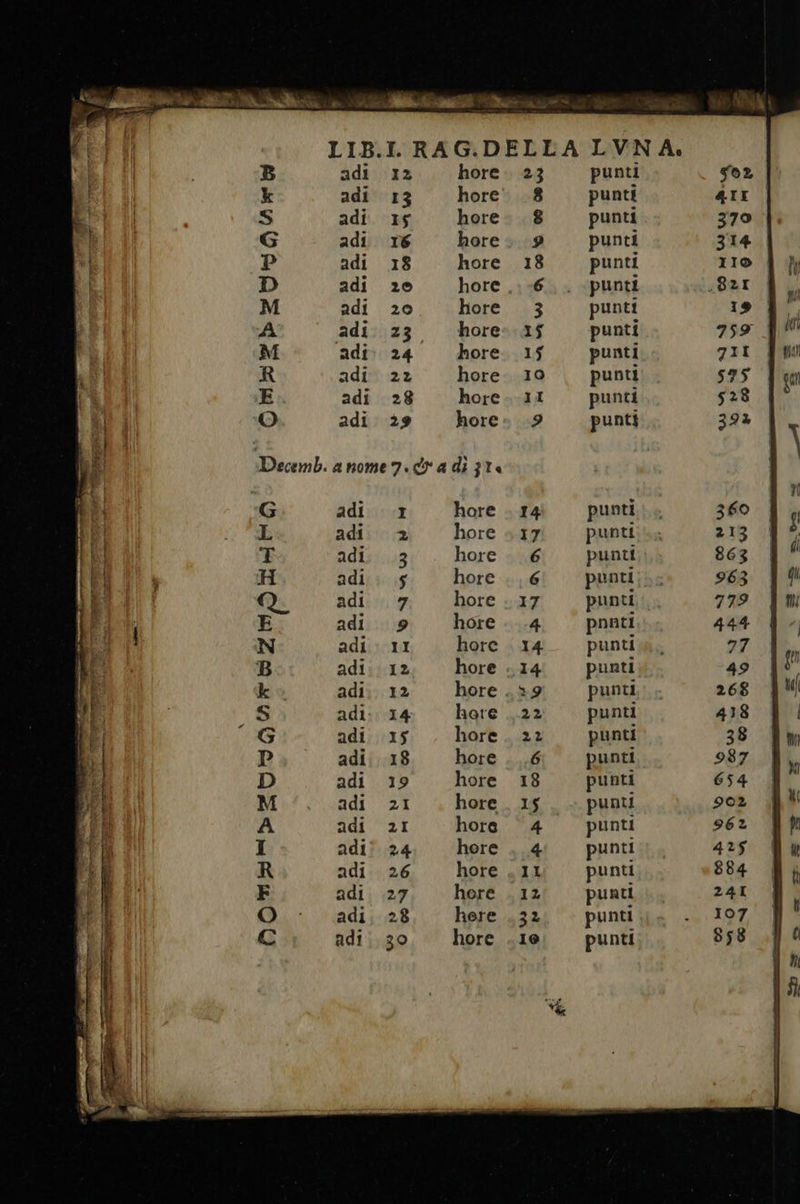 LIB.I. RAG.DELLA LVNA.
B adi 12 hore 23 punti 502
k adi 13 hore 8 punti 411
S adi 15 hore 8 punti 370
G adi 16 hore 9 punti 314
P adi 18 hore 18 punti 110
D adi 20 hore 6 punti 821
M adi 20 hore 3 punti 19
A adi 23 hore 15 punti 759
M adi 24 hore 15 punti 711
R adi 22 hore 10 punti 595
E adi 28 hore 11 punti 528
O adi 29 hore 9 punti 392
Decemb. a nome 7. & a di 31.
G adi 1 hore 14 punti 360
L adi 2 hore 17 punti 213
T adi 3 hore 6 punti 863
H adi 5 hore 6 punti 963
Q adi 7 hore 17 punti 779
E adi 9 hore 4 pnnti 444
N adi 11 hore 14 punti 77
B adi 12 hore 14 punti 49
k adi 12 hore 29 punti 268
S adi 14 hore 22 punti 418
G adi 15 hore 22 punti 38
P adi 18 hore 6 punti 987
D adi 19 hore 18 punti 654
M adi 21 hore 15 punti 902
A adi 21 hore 4 punti 962
I adi 24 hore 4 punti 425
R adi 26 hore 11 punti 884
F adi 27 hore 12 punti 241
O adi 28 hore 32 punti 107
C adi 30 hore 10 punti 858